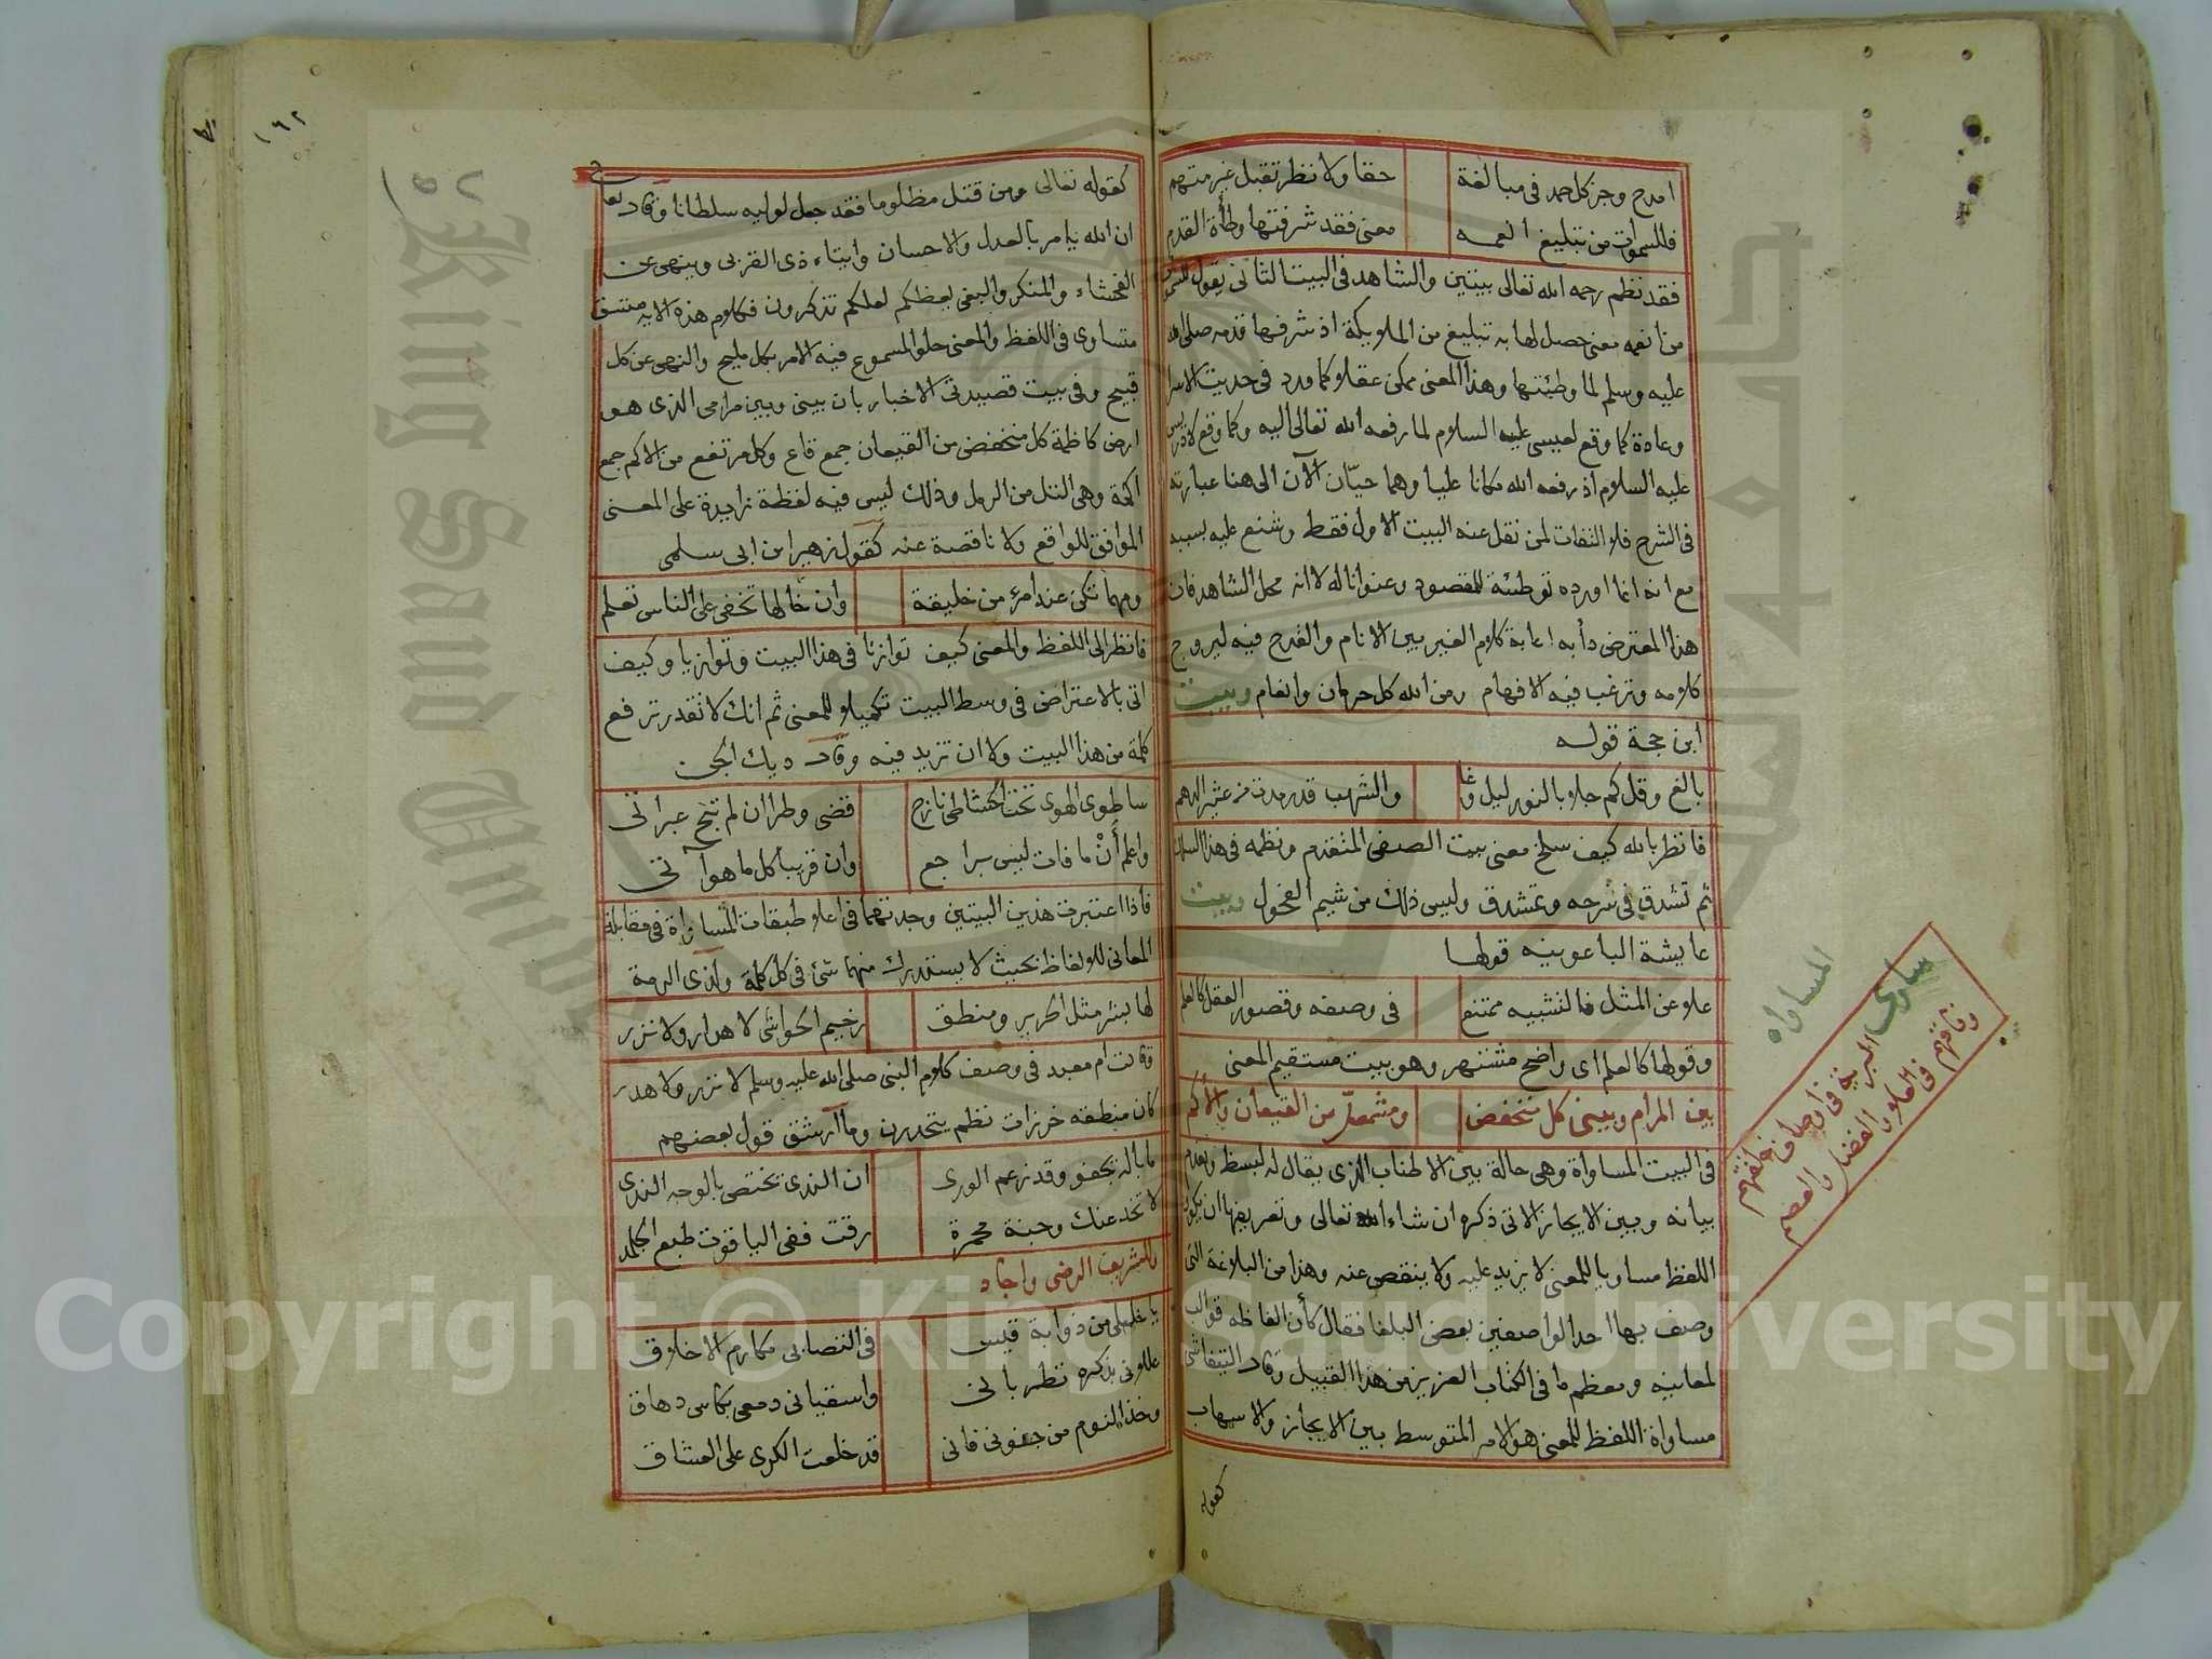 امدح وجز كل حد فى مبالغة حقا ولا نظر تقبل غير متهم
فللسموات من تبليغ انعمه معنى فقد شرفتها وطأة القدم
فقد نظم رحمه الله تعالى بيتين والشاهد فى البيت الثانى يقول للسموات
من انعمه معنى حصل لها به تبليغ من الملايكة اذ شرفها قدمه صلى الله
عليه وسلم لما وطئتها وهذا المعنى ممكن عقلا كما ورد فى حديث الاسرا
وعادة كما وقع لعيسى عليه السلام لما رفعه الله تعالى اليه وكما وقع لادريس
عليه السلام اذ رفعه الله مكانا عليا وهما حيّان الآن الى هنا عبارته
فى الشرح فلا التفات لمن نقل عنه البيت الاول فقط وشنع عليه بسببه
مع انه انما اورده توطئة للمقصود وعنوانا له لا انه محل الشاهد فان
هذا المعترض دأبه اعابة كلام الغير بين الانام والقدح فيه ليروج
كلامه وترغب فيه الافهام ومن الله كل حرمان وانعام وبيت
ابن حجة قوله
بالغ وقل كم جلا بالنور ليل وغا والشهب قد رمدت من عثير الدهم
فانظر بالله كيف سلخ معنى بيت الصفى المتقدم ونظمه فى هذا السلك
ثم تشدق فى شرحه وتمشدق وليس ذلك من شيم الفحول وبيت
عايشة الباعونيه قولها
علا عن المثل فالتشبيه ممتنع فى وصفه وقصور العقل كالعلم
وقولها كالعلم اى واضح مشتهر وهو بيت مستقيم المعنى
بين المرام وبينى كل منخفض ومشمعلّ من القيعان والأكم
فى البيت المساواة وهى حالة بين الاطناب الذى يقال له لبسط وتقدم
بيانه وبين الايجاز الاتى ذكره ان شاء الله تعالى وتعريفها ان يكون
اللفظ مساويا للمعنى لا يزيد عليه ولا ينقص عنه وهذا من البلاغة التى
وصف بها احد الواصفين بعض البلغا فقال كأن الفاظه قوالب
لمعانيه ومعظم ما فى الكتاب العزيز من هذا القبيل وقال التيفاشى
مساواة اللفظ للمعنى هو الامر المتوسط بين الايجاز والاسهاب
كقوله
المساواه
ساوى البرية فى اوصاف خلقتهم
وفاقهم فى العلا والفضل والعصم
١٦٢
كقوله تعالى ومن قتل مظلوما فقد جعل لوليه سلطانا وقال تعالى
ان الله يامر بالعدل والاحسان وايتاء ذى القربى وينهى عن
الفحشاء والمنكر والبغى يعظكم لعلكم تذكرون فكلام هذه الايه متسق
متساوى فى اللفظ والمعنى حلو المسموع فيه الامر بكل مليح والنهى عن كل
قبيح وفى بيت قصيدتى الاخبار بان بينى وبين مرامى الذى هو
ارض كاظمة كل منخفض من القيعان جمع قاع وكل مرتفع من الاكم جمع
اكمة وهى التل من الرمل وذلك ليس فيه لفظة زايدة على المعنى
الموافق للواقع ولا ناقصة عنه كقول زهير ابن ابى سلمى
ومهما تكن عند امرئ من خليقة وان خالها تخفى على الناس تعلم
فانظر الى اللفظ والمعنى كيف توازنا فى هذا البيت وتوازيا وكيف
اتى بالاعتراض فى وسط البيت تكميلا للمعنى ثم انك لا تقدر ترفع
كلمة من هذا البيت ولا ان تزيد فيه وقال ديك الجن
ساطوى الهوى تحت الحشا طى نازح قضى وطرا ان لم تبح عبراتى
واعلم أنْ ما فات ليس براجع وان قريبا كل ما هو آتى
فاذا اعتبرت هذين البيتين وجدتهما فى اعلا طبقات المساواة فى مقابلة
المعانى للالفاظ بحيث لا يستدرك منهما شئ فى كل كلمة ولذى الرمة
لها بشر مثل الحرير ومنطق رخيم الحواشى لا هدار ولا نزر
وقالت ام معبد فى وصف كلام النبى صلى الله عليه وسلم لا نزر ولا هدر
كان منطقه خرزات نظم يتحدرن وما ارشق قول بعضهم
ما باله يجفو وقد زعم الورى ان الندى يختص بالوجه الندى
لا تخدعنك وجنة محمرة رقت ففى الياقوت طبع الجلمد
وللشريف الرضى واجاد
يا خليلى من ذوابة قيس فى التصابى مكارم الاخلاق
عللونى بذكره تطربانى واسقيانى دمعى بكاس دهاق
وخذ النوم من جفونى فانى قد خلعت الكرى على العشاق
Copyright © King Saud University